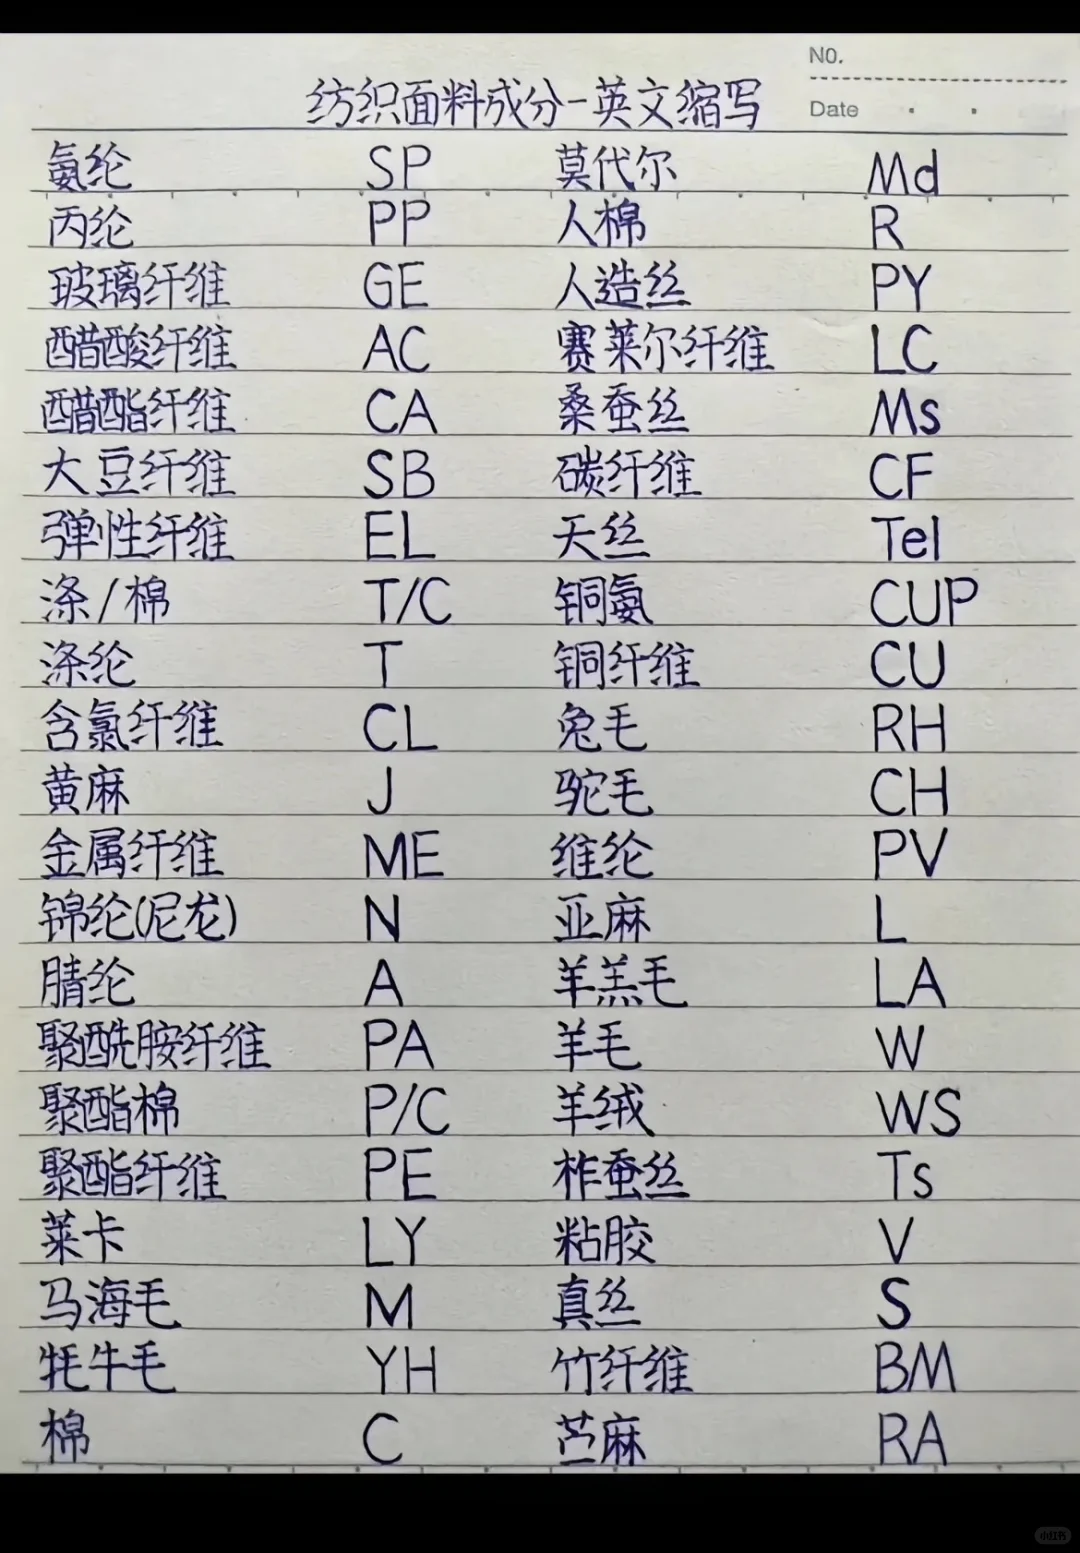 NO.
纺织面料成分-英文缩写
Date
氨纶 SP 莫代尔 Md
丙纶 PP 人棉 R
玻璃纤维 GE 人造丝 PY
醋酸纤维 AC 赛莱尔纤维 LC
醋酯纤维 CA 桑蚕丝 Ms
大豆纤维 SB 碳纤维 CF
弹性纤维 EL 天丝 Tel
涤/棉 T/C 铜氨 CUP
涤纶 T 铜纤维 CU
含氯纤维 CL 兔毛 RH
黄麻 J 驼毛 CH
金属纤维 ME 维纶 PV
锦纶(尼龙) N 亚麻 L
腈纶 A 羊羔毛 LA
聚酰胺纤维 PA 羊毛 W
聚酯棉 P/C 羊绒 WS
聚酯纤维 PE 柞蚕丝 Ts
莱卡 LY 粘胶 V
马海毛 M 真丝 S
牦牛毛 YH 竹纤维 BM
棉 C 苎麻 RA